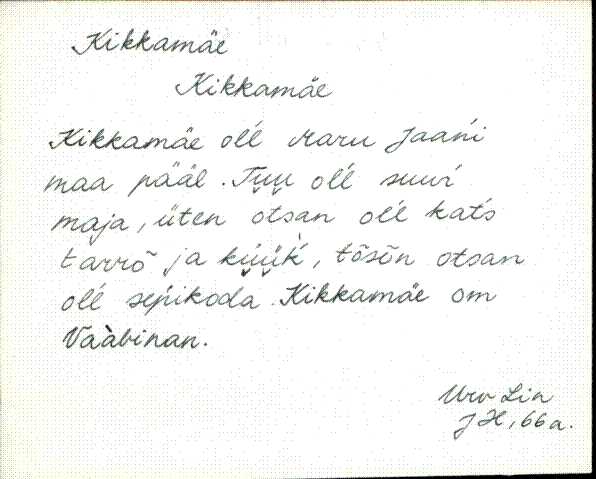 Kikkamäe
Kikkamäe
Kikkamäe oĺĺ Maru Jaańi
maa pääl. Tyy̬ oĺĺ suuŕ
maja, üten otsan oĺĺ kat́s
tarrõ ja küüḱ, tõsõn otsan
oĺĺ sepikoda. Kikkamäe om
Vaàbinan.
Urv Lin
JH, 66a.